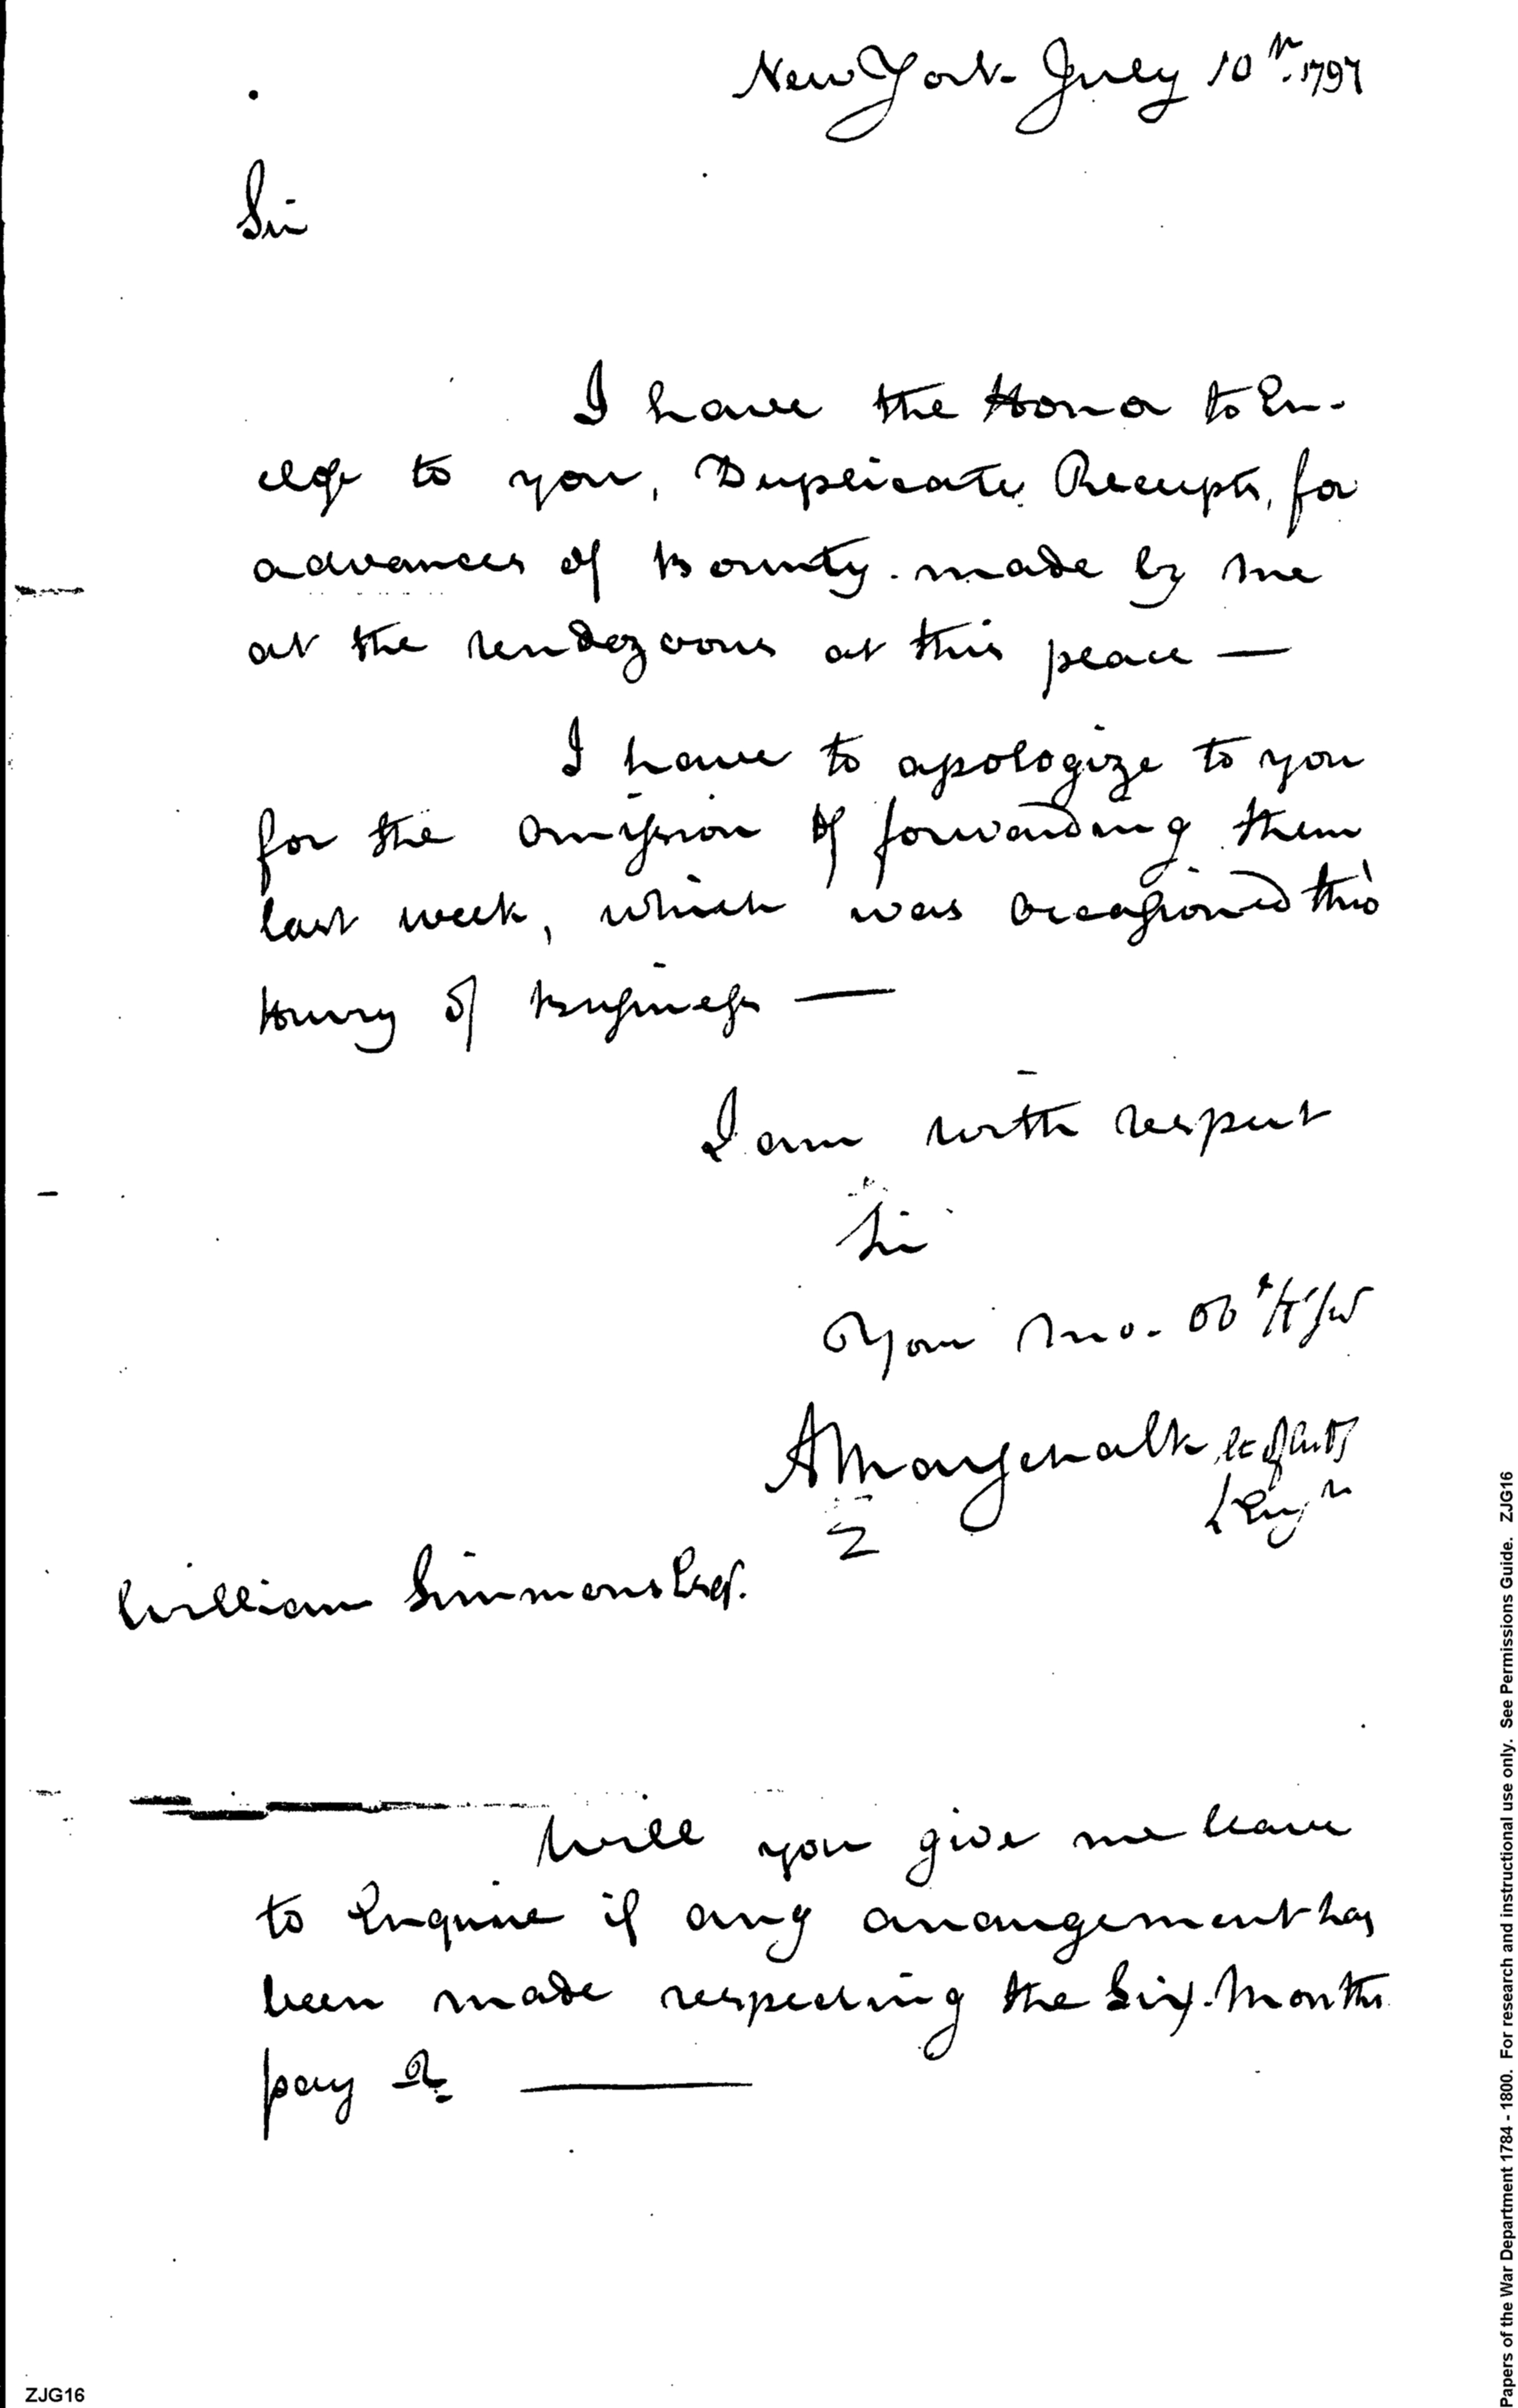 New York July 10th. 1797
Sir
I have the Honor to En-
close to you, Duplicate Receipts, for
advances of Bounty. made by me
at the rendezvous at this place —
I have to apologize to you
for the Omission of forwarding them
last week, which was occasioned thro'
Hurry of Business —
I am with respect
Sir
Your mo. Obt
A Marschalk Lt of Art
& Engrs
William Simmons Esqr.
Will you give me leave
to Enquire if any arrangement has
been made respecting the Six. Months
pay &c —
ZJG16
Papers of the War Department 1784 - 1800. For research and instructional use only. See Permissions Guide. ZJG16